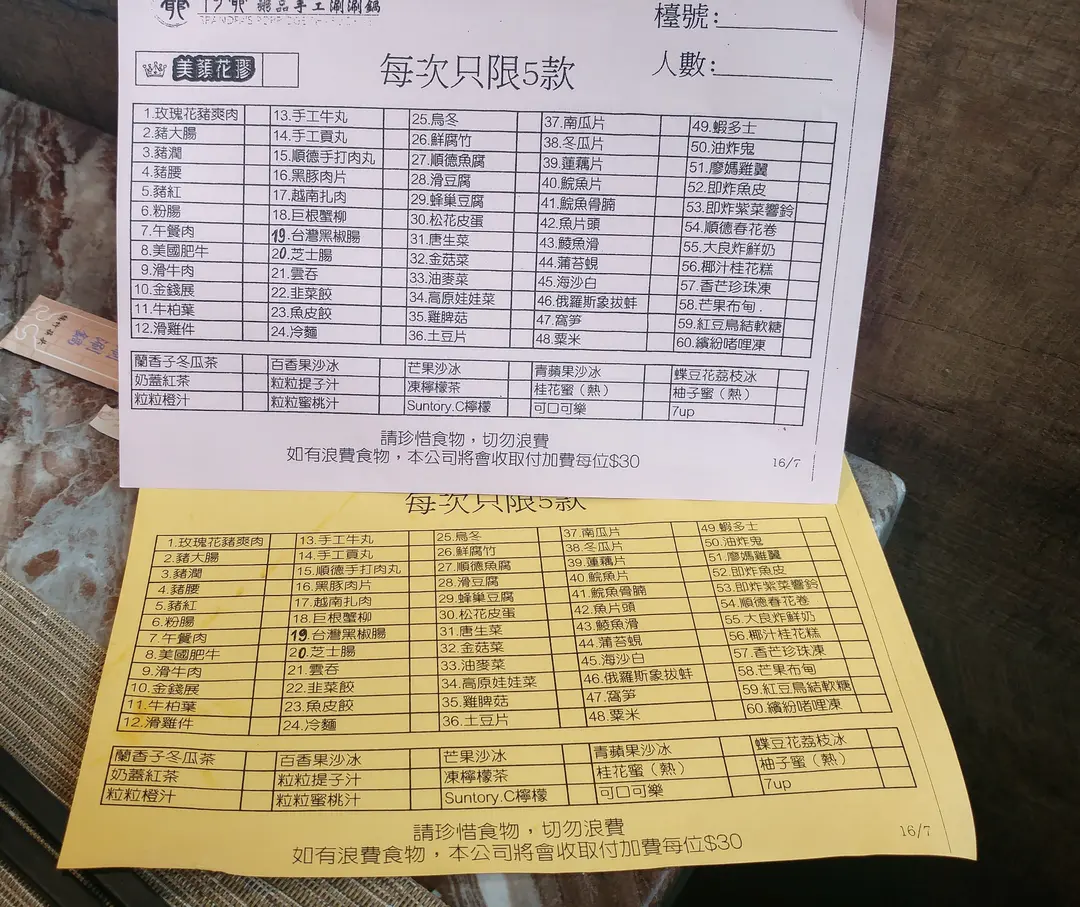 爺 竹爺 甂品手工涮涮鍋
檯號:
人數:
美顏花膠
每次只限5款
1.玫瑰花豬爽肉 13.手工牛丸 25.烏冬 37.南瓜片 49.蝦多士
2.豬大腸 14.手工貢丸 26.鮮腐竹 38.冬瓜片 50.油炸鬼
3.豬潤 15.順德手打肉丸 27.順德魚腐 39.蓮藕片 51.廖媽雞翼
4.豬腰 16.黑豚肉片 28.滑豆腐 40.鯇魚片 52.即炸魚皮
5.豬紅 17.越南扎肉 29.蜂巢豆腐 41.鯇魚骨腩 53.即炸紫菜響鈴
6.粉腸 18.巨根蟹柳 30.松花皮蛋 42.魚片頭 54.順德春花卷
7.午餐肉 19.台灣黑椒腸 31.唐生菜 43.鯪魚滑 55.大良炸鮮奶
8.美國肥牛 20.芝士腸 32.金菇菜 44.蒲苔蜆 56.椰汁桂花糕
9.滑牛肉 21.雲吞 33.油麥菜 45.海沙白 57.香芒珍珠凍
10.金錢展 22.韭菜餃 34.高原娃娃菜 46.俄羅斯象拔蚌 58.芒果布甸.
11.牛柏葉 23.魚皮餃 35.雞脾菇 47.窩笋 59.紅豆鳥結軟糖
12.滑雞件 24.冷麵 36.土豆片 48.粟米 60.繽紛啫哩凍
蘭香子冬瓜茶 百香果沙冰 芒果沙冰 青蘋果沙冰 蝶豆花荔枝冰
奶蓋紅茶 粒粒提子汁 凍檸檬茶 桂花蜜（熱） 柚子蜜（熱）
粒粒橙汁 粒粒蜜桃汁 Suntory.C檸檬 可口可樂 7up
請珍惜食物，切勿浪費
如有浪費食物，本公司將會收取付加費每位$30
16/7
每次只限5款
1.玫瑰花豬爽肉 13.手工牛丸 25.烏冬 37.南瓜片 49.蝦多士
2.豬大腸 14.手工貢丸 26.鮮腐竹 38.冬瓜片 50.油炸鬼
3.豬潤 15.順德手打肉丸 27.順德魚腐 39.蓮藕片 51.廖媽雞翼
4.豬腰 16.黑豚肉片 28.滑豆腐 40.鯇魚片 52.即炸魚皮
5.豬紅 17.越南扎肉 29.蜂巢豆腐 41.鯇魚骨腩 53.即炸紫菜響鈴
6.粉腸 18.巨根蟹柳 30.松花皮蛋 42.魚片頭 54.順德春花卷
7.午餐肉 19.台灣黑椒腸 31.唐生菜 43.鯪魚滑 55.大良炸鮮奶
8.美國肥牛 20.芝士腸 32.金菇菜 44.蒲苔蜆 56.椰汁桂花糕
9.滑牛肉 21.雲吞 33.油麥菜 45.海沙白 57.香芒珍珠凍
10.金錢展 22.韭菜餃 34.高原娃娃菜 46.俄羅斯象拔蚌 58.芒果布甸
11.牛柏葉 23.魚皮餃 35.雞脾菇 47.窩笋 59.紅豆鳥結軟糖
12.滑雞件 24.冷麵 36.土豆片 48.粟米 60.繽紛啫哩凍
蘭香子冬瓜茶 百香果沙冰 芒果沙冰 青蘋果沙冰 蝶豆花荔枝冰
奶蓋紅茶 粒粒提子汁 凍檸檬茶 桂花蜜（熱） 柚子蜜（熱）
粒粒橙汁 粒粒蜜桃汁 Suntory.C檸檬 可口可樂 7up
請珍惜食物，切勿浪費
如有浪費食物，本公司將會收取付加費每位$30
16/7